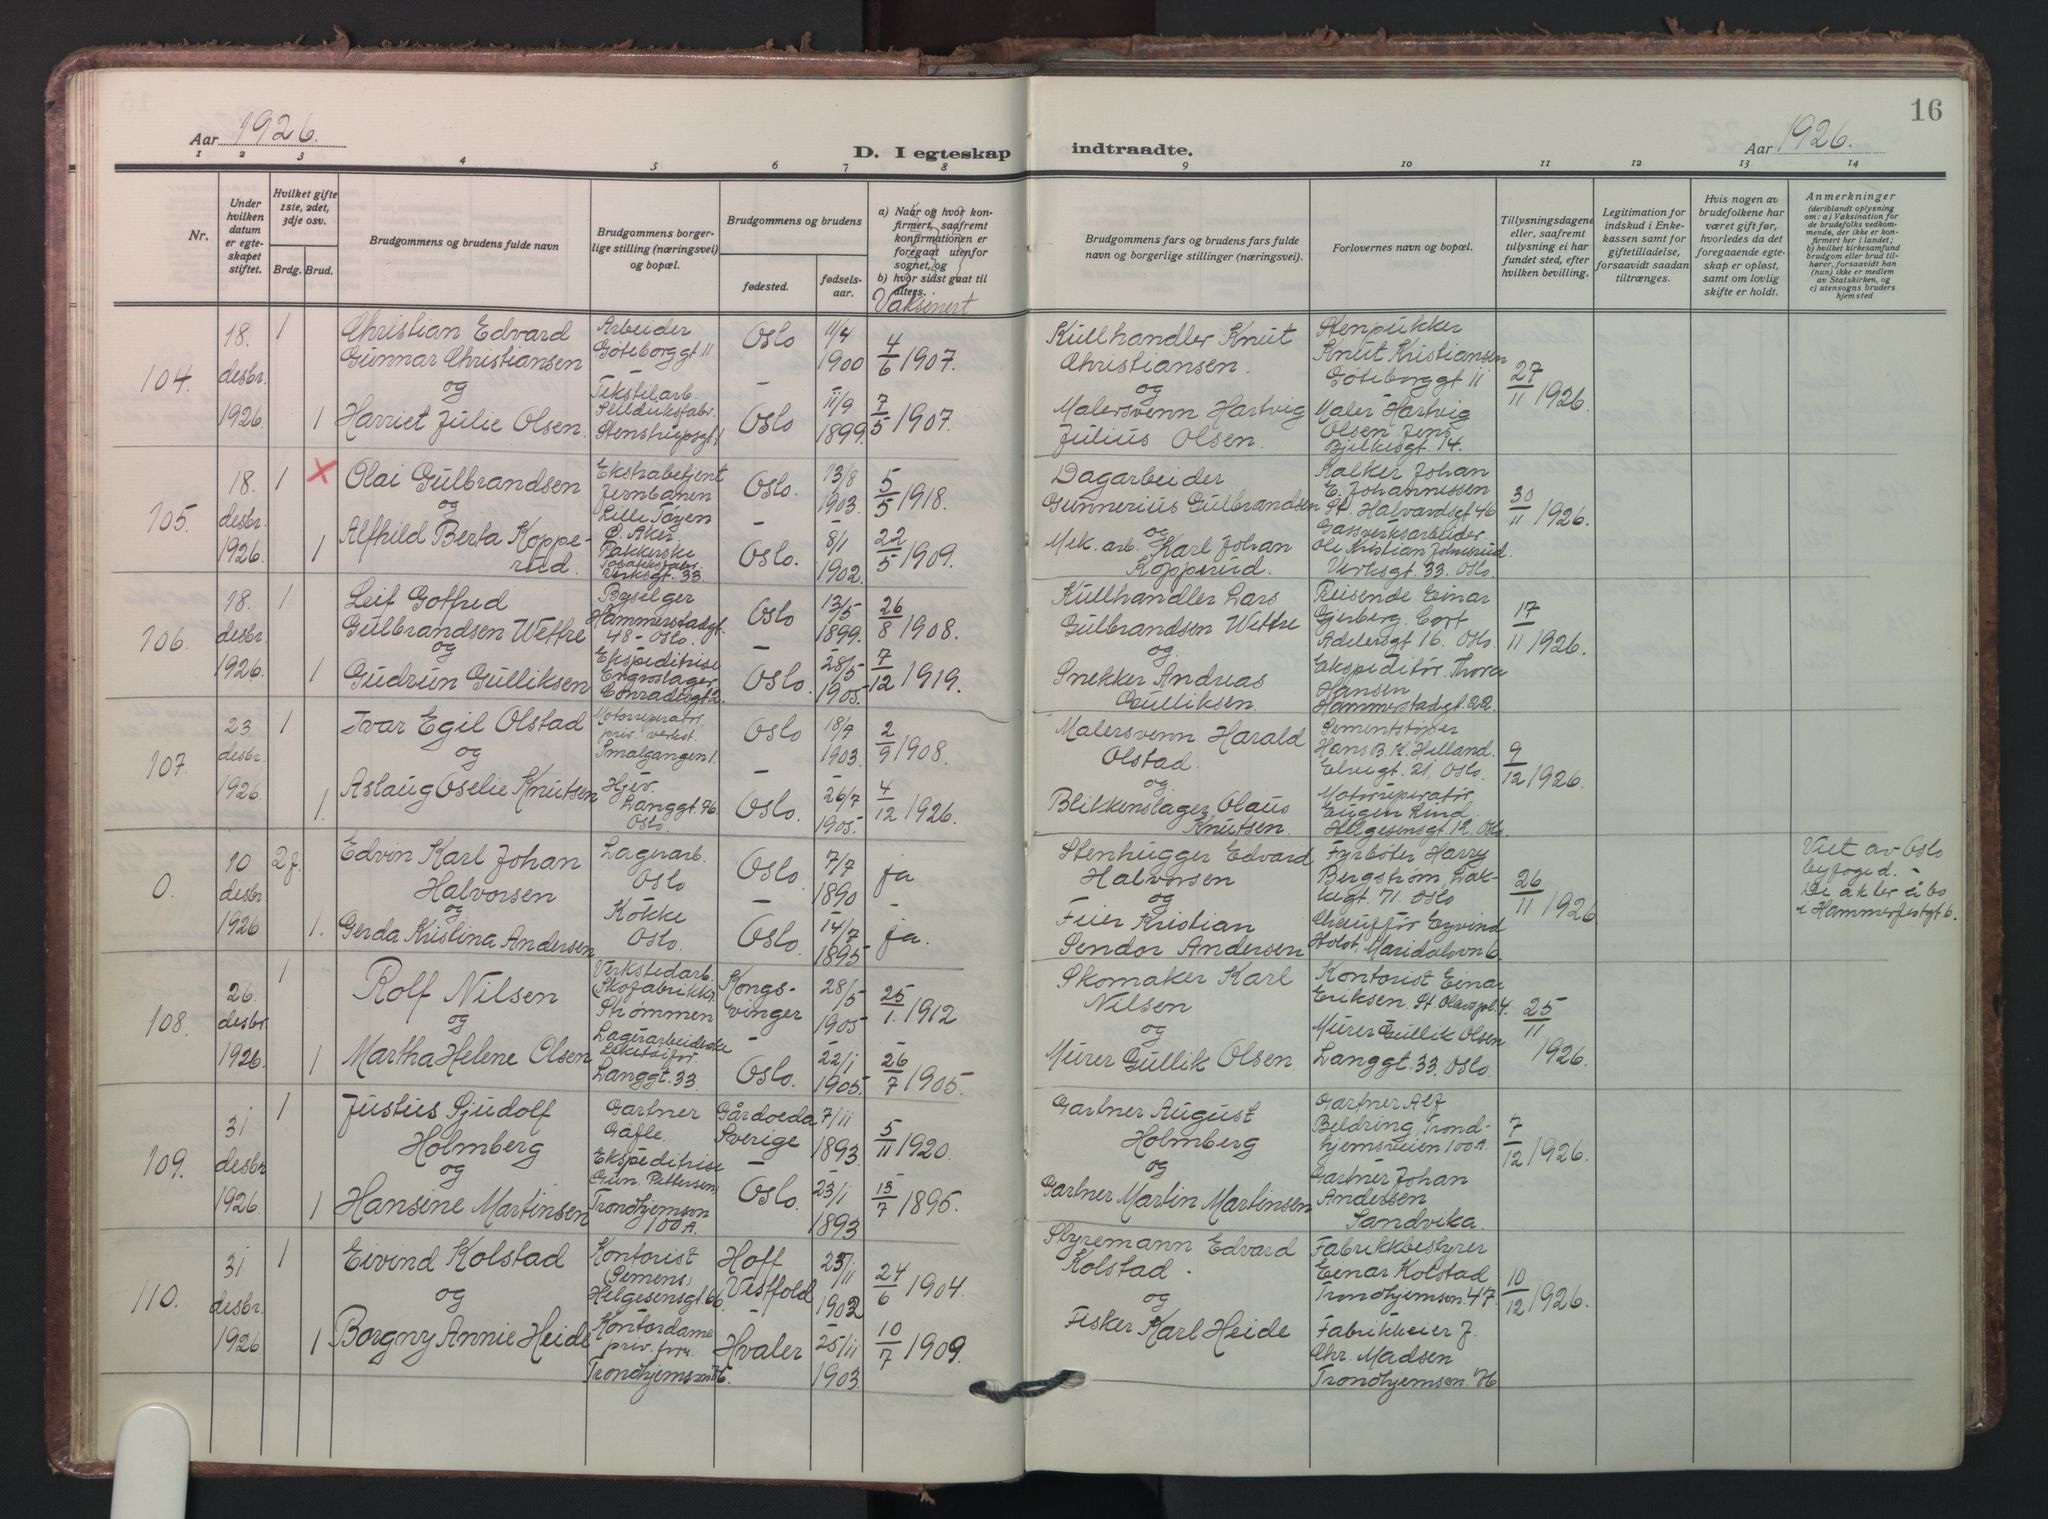 Aar 1926.
D. I egteskap
indtraadte.
Aar 1926.
16
1 2 3 4 5 6 7 8 9 10 11 12 13 14
Nr.
Under hvilken datum er egteskapet stiftet.
Hvilket gifte 1ste, 2det, 3dje osv.
Brdg. Brud.
Brudgommens og brudens fulde navn
Brudgommens borgerlige stilling (næringsvei) og bopæl.
Brudgommens og brudens
fødested.
fødselsaar.
a) Naar og hvor konfirmert, saafremt konfirmationen er foregaat utenfor sognet, og
b) hvor sidst gaat til alters.
Vaksinert
Brudgommens fars og brudens fars fulde navn og borgerlige stillinger (næringsvei).
Forlovernes navn og bopæl.
Tillysningsdagene eller, saafremt tillysning ei har fundet sted, efter hvilken bevilling.
Legitimation for indskud i Enkekassen samt for giftetilladelse, forsaavidt saadan tiltrænges.
Hvis nogen av brudefolkene har været gift før, hvorledes da det foregaaende egteskap er opløst, samt om lovlig skifte er holdt.
Anmerkninger
(deriblandt oplysning om: a) Vaksination for de brudefolks vedkommende, der ikke er konfirmert her i landet; b) hvilket kirkesamfund brudgom eller brud tilhører, forsaavidt han (hun) ikke er medlem av Statskirken, og c) utensogns bruders hjemsted
104.
18. desbr. 1926.
1
Christian Edvard
Gunnar Christiansen
og
1
Harriet Julie Olsen.
Arbeider
Göteborggt 11
Tekstilarb.
Seilduksfabr.
Stenstrupsgt 1
Oslo
-
Oslo
11/4 1900
11/9 1899.
4/6 1907.
7/5 1907.
Kullhandler Knut
Christiansen.
og
Malersvenn Hartvig
Julius Olsen.
Stenpukker
Knut Kristiansen
Göteborggt 11
Maler Hartvig
Olsen Jens
Bjelkesgt 14.
27/11 1926.
105.
18. desbr. 1926.
1
X
Olai Gulbrandsen
og
1
Alfhild Berta Kopperud.
Ekstrabetjent
Jernbanen
Lille Tøyen
Ø. Aker
Pakkerske
Tobakksfabr.
Verksgt. 33.
Oslo.
-
Oslo.
13/8 1903.
8/1 1902.
5/5 1918.
22/5 1909.
Dagarbeider
Gunnerius Gulbrandsen
og
Mek. arb. Karl Johan
Kopperud.
Kalker Johan
E. Johannessen
St. Halvardsgt 46
Gassverksarbeider
Ole Kristian Johnsrud.
Verksgt. 33. Oslo.
30/11 1926.
106.
18. desbr. 1926.
1
Leif Gotfred
Gulbrandsen Wettre
og
1
Gudrun Gulliksen
Byselger
Hammerstadgt.
48 - Oslo.
Ekspeditrise
Engroslager
Conradisgt 2.
Oslo
-
Oslo.
13/5 1899.
28/5 1905.
26/8 1908.
7/12 1919.
Kullhandler Lars
Gulbrandsen Wettre
og
Snekker Andreas
Gulliksen.
Reisende Einar
Gjerberg. Cort
Adelersgt 16. Oslo.
Ekspeditør. Thora
Hansen
Hammerstadgt. 22.
17/11 1926.
107.
23. desbr. 1926.
1
Ivar Egil Olstad
og
1.
Aslaug Oselie Knutsen
Motorreperatør.
priv. verkst.
Smalgangen 1.
Hjev.
Langgt. 46.
Oslo.
Oslo
-
Oslo.
18/9 1903.
26/7 1905.
2/9 1908.
4/12 1926.
Malersvenn Harald
Olstad.
og
Blikkenslager Olaus
Knutsen.
Sementstøper
Hans B. K. Helland.
Elvegt. 21, Oslo.
Motorreperatør
Eugen Lind.
Helgesensgt 12, Oslo.
9/12 1926.
0.
10 desbr 1926
2 f.
Edvin Karl Johan
Halvorsen
og
1.
Gerda Kristina Andersen
Lagerarb.
Oslo
Kokke
Oslo.
Oslo.
-
Oslo.
7/7 1890
14/7 1895
ja
-
ja.
Stenhugger Edvard
Halvorsen
og
Feier Kristian
Sendor Andersen
Fyrbøter Harry
Bergstrøm, Lakkegt. 71. Oslo
Chauffør Eyvind
Holst. Maridalsvn 6.
26/11 1926.
Viet av Oslo
byfoged. -
De akter å bo
i Hammerfestgt 6.
108.
26. desbr. 1926.
1
Rolf Nilsen
og
1
Martha Helene Olsen
Verkstedarb.
(Skofabrikk)
Strømmen
Lagerarbeiderske
Leketøifor.
Langgt. 33.
Kongsvinger
-
Oslo.
28/5 1905
22/1 1905.
25/1. 1912
26/7 1905.
Skomaker Karl
Nilsen
og
Murer Gullik Olsen
Kontorist Einar
Eriksen. St Olavspl. 4.
Murer Gullik Olsen
Langgt. 33. Oslo.
25/11 1926.
109.
31 desbr 1926.
1
Justus Sjudolf
Holmberg
og
1
Hansine Martinsen
Gartner
Gäfle.
Ekspeditrise
Gun. Pettersen
Trondhjemsvn
100 A.
Gårdoeda
Sverige
-
Oslo.
7/11 1893.
23/1 1893
5/11 1920.
13/7 1895.
Gartner August
Holmberg
og
Gartner Martin Martinsen
Gartner Alf
Beldring Trondhjemsveien 100 A.
Gartner Johan
Andersen
Sandvika.
7/12 1926.
110.
31 desbr. 1926
1
Eivind Kolstad
og
1
Borgny Annie Heide
Kontorist
(Semens)
Helgesensgt. 66.
Kontordame
priv. forr.
Trondhjemsvn 76.
Hoff
Vestfold
-
Hvaler
23/11 1902
25/11 1903.
24/6 1904.
10/7 1909.
Styremann Edvard
Kolstad.
og
Fisker Karl Heide
Fabrikkbestyrer
Einar Kolstad
Trondhjemsvn. 47.
Fabrikkeier J.
Chr. Madsen
Trondhjemsvn. 76
10/12 1926.